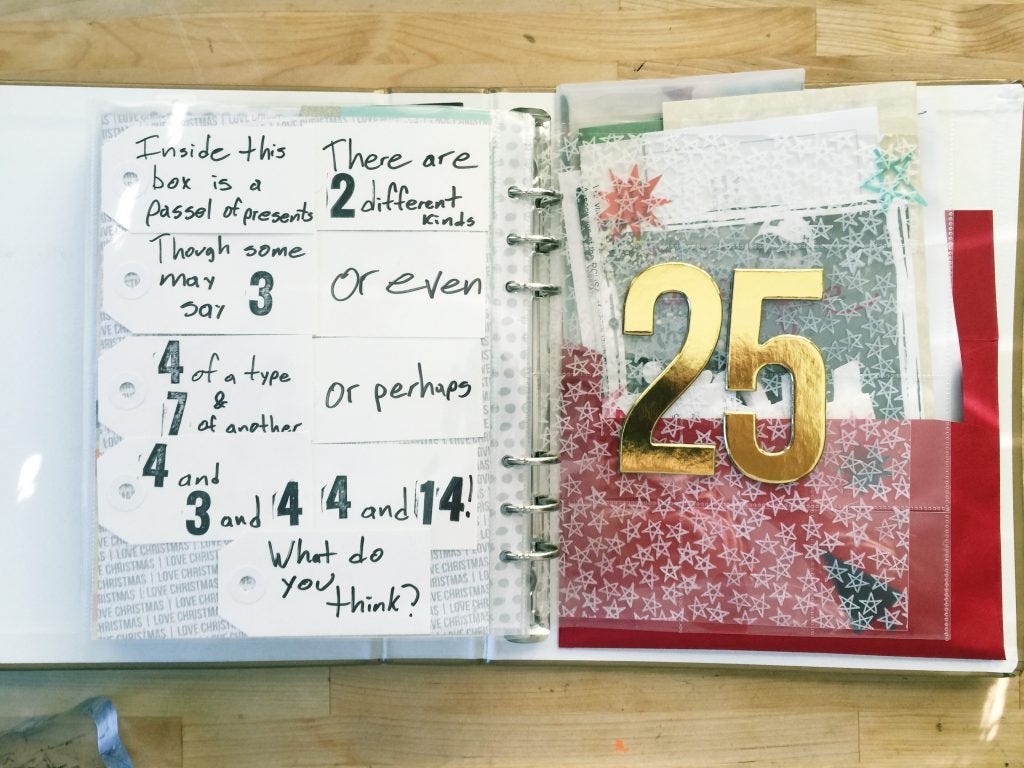 Inside this
box is a
passel of presents
There are
2 different
kinds
Though some
may
say 3
Or even
4 of a type
&
7 of another
or perhaps
4 and
3 and 4
4 and 14!
What do
you
think?
I LOVE CHRISTMAS | I LOVE CHRISTMAS
25